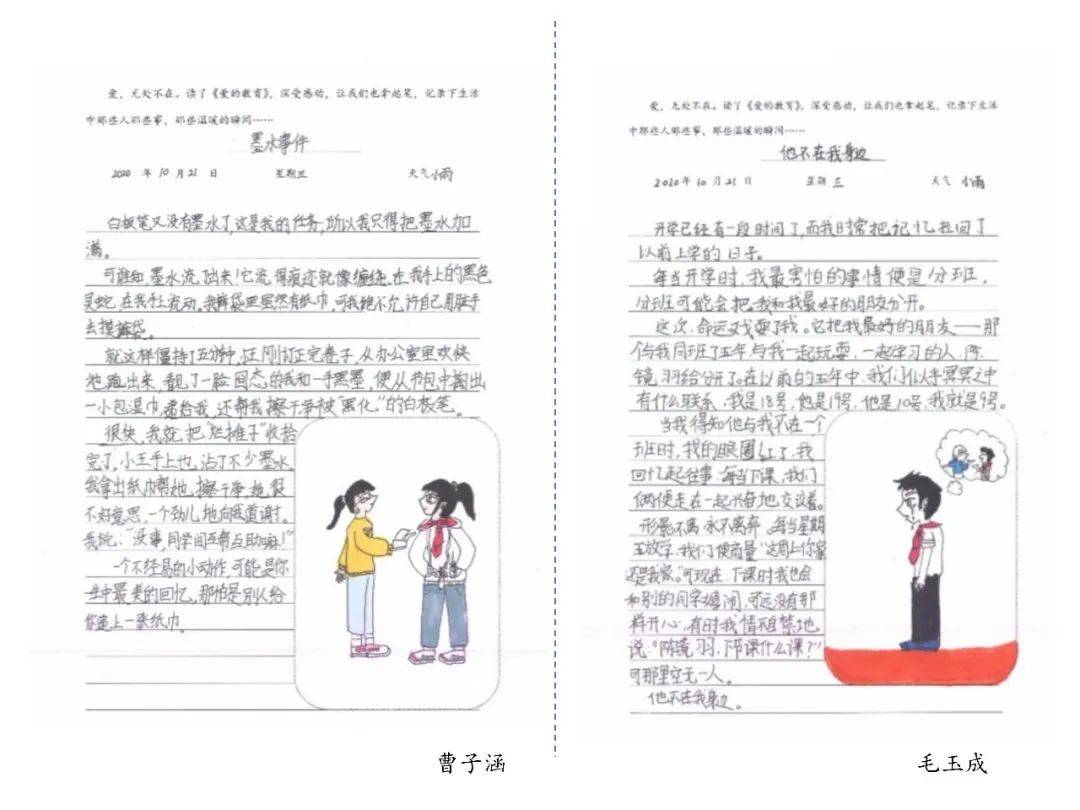 爱，无处不在。读了《爱的教育》，深受感动，让我们也拿起笔，记录下生活
中那些人那些事，那些温暖的瞬间……
墨水事件
2020 年 10 月 21 日 星期三 天气 小雨
白板笔又没有墨水了，这是我的任务，所以我只得把墨水加
满。
可谁知，墨水流了出来！它流得痕迹就像缠绕在我手上的黑色
灵蛇，在我手上流动。我裤袋里虽然有纸巾，可我绝不允许自己用脏手
去摸裤袋。
就这样僵持了五分钟，王刚订正完卷子，从办公室里欢快
地跑出来，看见了一脸囧态的我和一手黑墨，便从书包中掏出
一小包湿巾，递给我，还帮我擦干净被“黑化”的白板笔。
很快，我就把“烂摊子”收拾
完了，小王手上也沾了不少墨水，
我拿出纸巾帮她擦干净，她很
不好意思，一个劲儿地向我道谢。
我说：“没事，同学间互帮互助嘛！”
一个不经易的小动作，可能是你
一生中最美的回忆，那怕是别人给
你递上一张纸巾。
曹子涵
爱，无处不在。读了《爱的教育》，深受感动，让我们也拿起笔，记录下生活
中那些人那些事，那些温暖的瞬间……
他不在我身边
2020年 10 月 21 日 星期 三 天气 小雨
开学已经有一段时间了，而我时常把记忆拉回了
以前上学的日子。
每当开学时，我最害怕的事情便是分班，
分班可能会把我和我最好的朋友分开。
这次，命运又戏耍了我。它把我最好的朋友——那
个与我同班了五年，与我一起玩耍，一起学习的人，陈
镜羽给分开了。在以前的五年中，我们似乎冥冥之中
有什么联系，我是18号，他是19号，他是10号，我就是9号。
当我得知他与我不在一个
班时，我的眼圈红了，我
回忆起往事：每当下课，我们
俩便走在一起兴奋地交谈着。
形影不离，永不离弃。每当星期
五放学，我们便商量“这周上你家
还是我家。”可现在，下课时我也会
和别的同学嬉闹，可远没有那
样开心，有时我情不自禁地
说：“陈镜羽，下节课什么课？”
可那里空无一人。
他不在我身边。
毛玉成